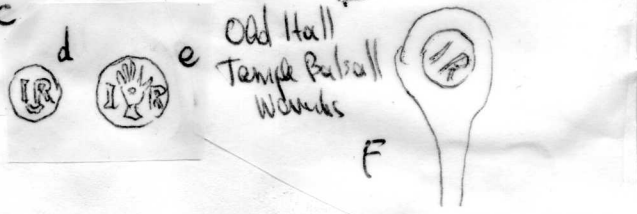 c
d
IR
I R
e
Old Hall
Temple Balsall
Warwicks
F
IR